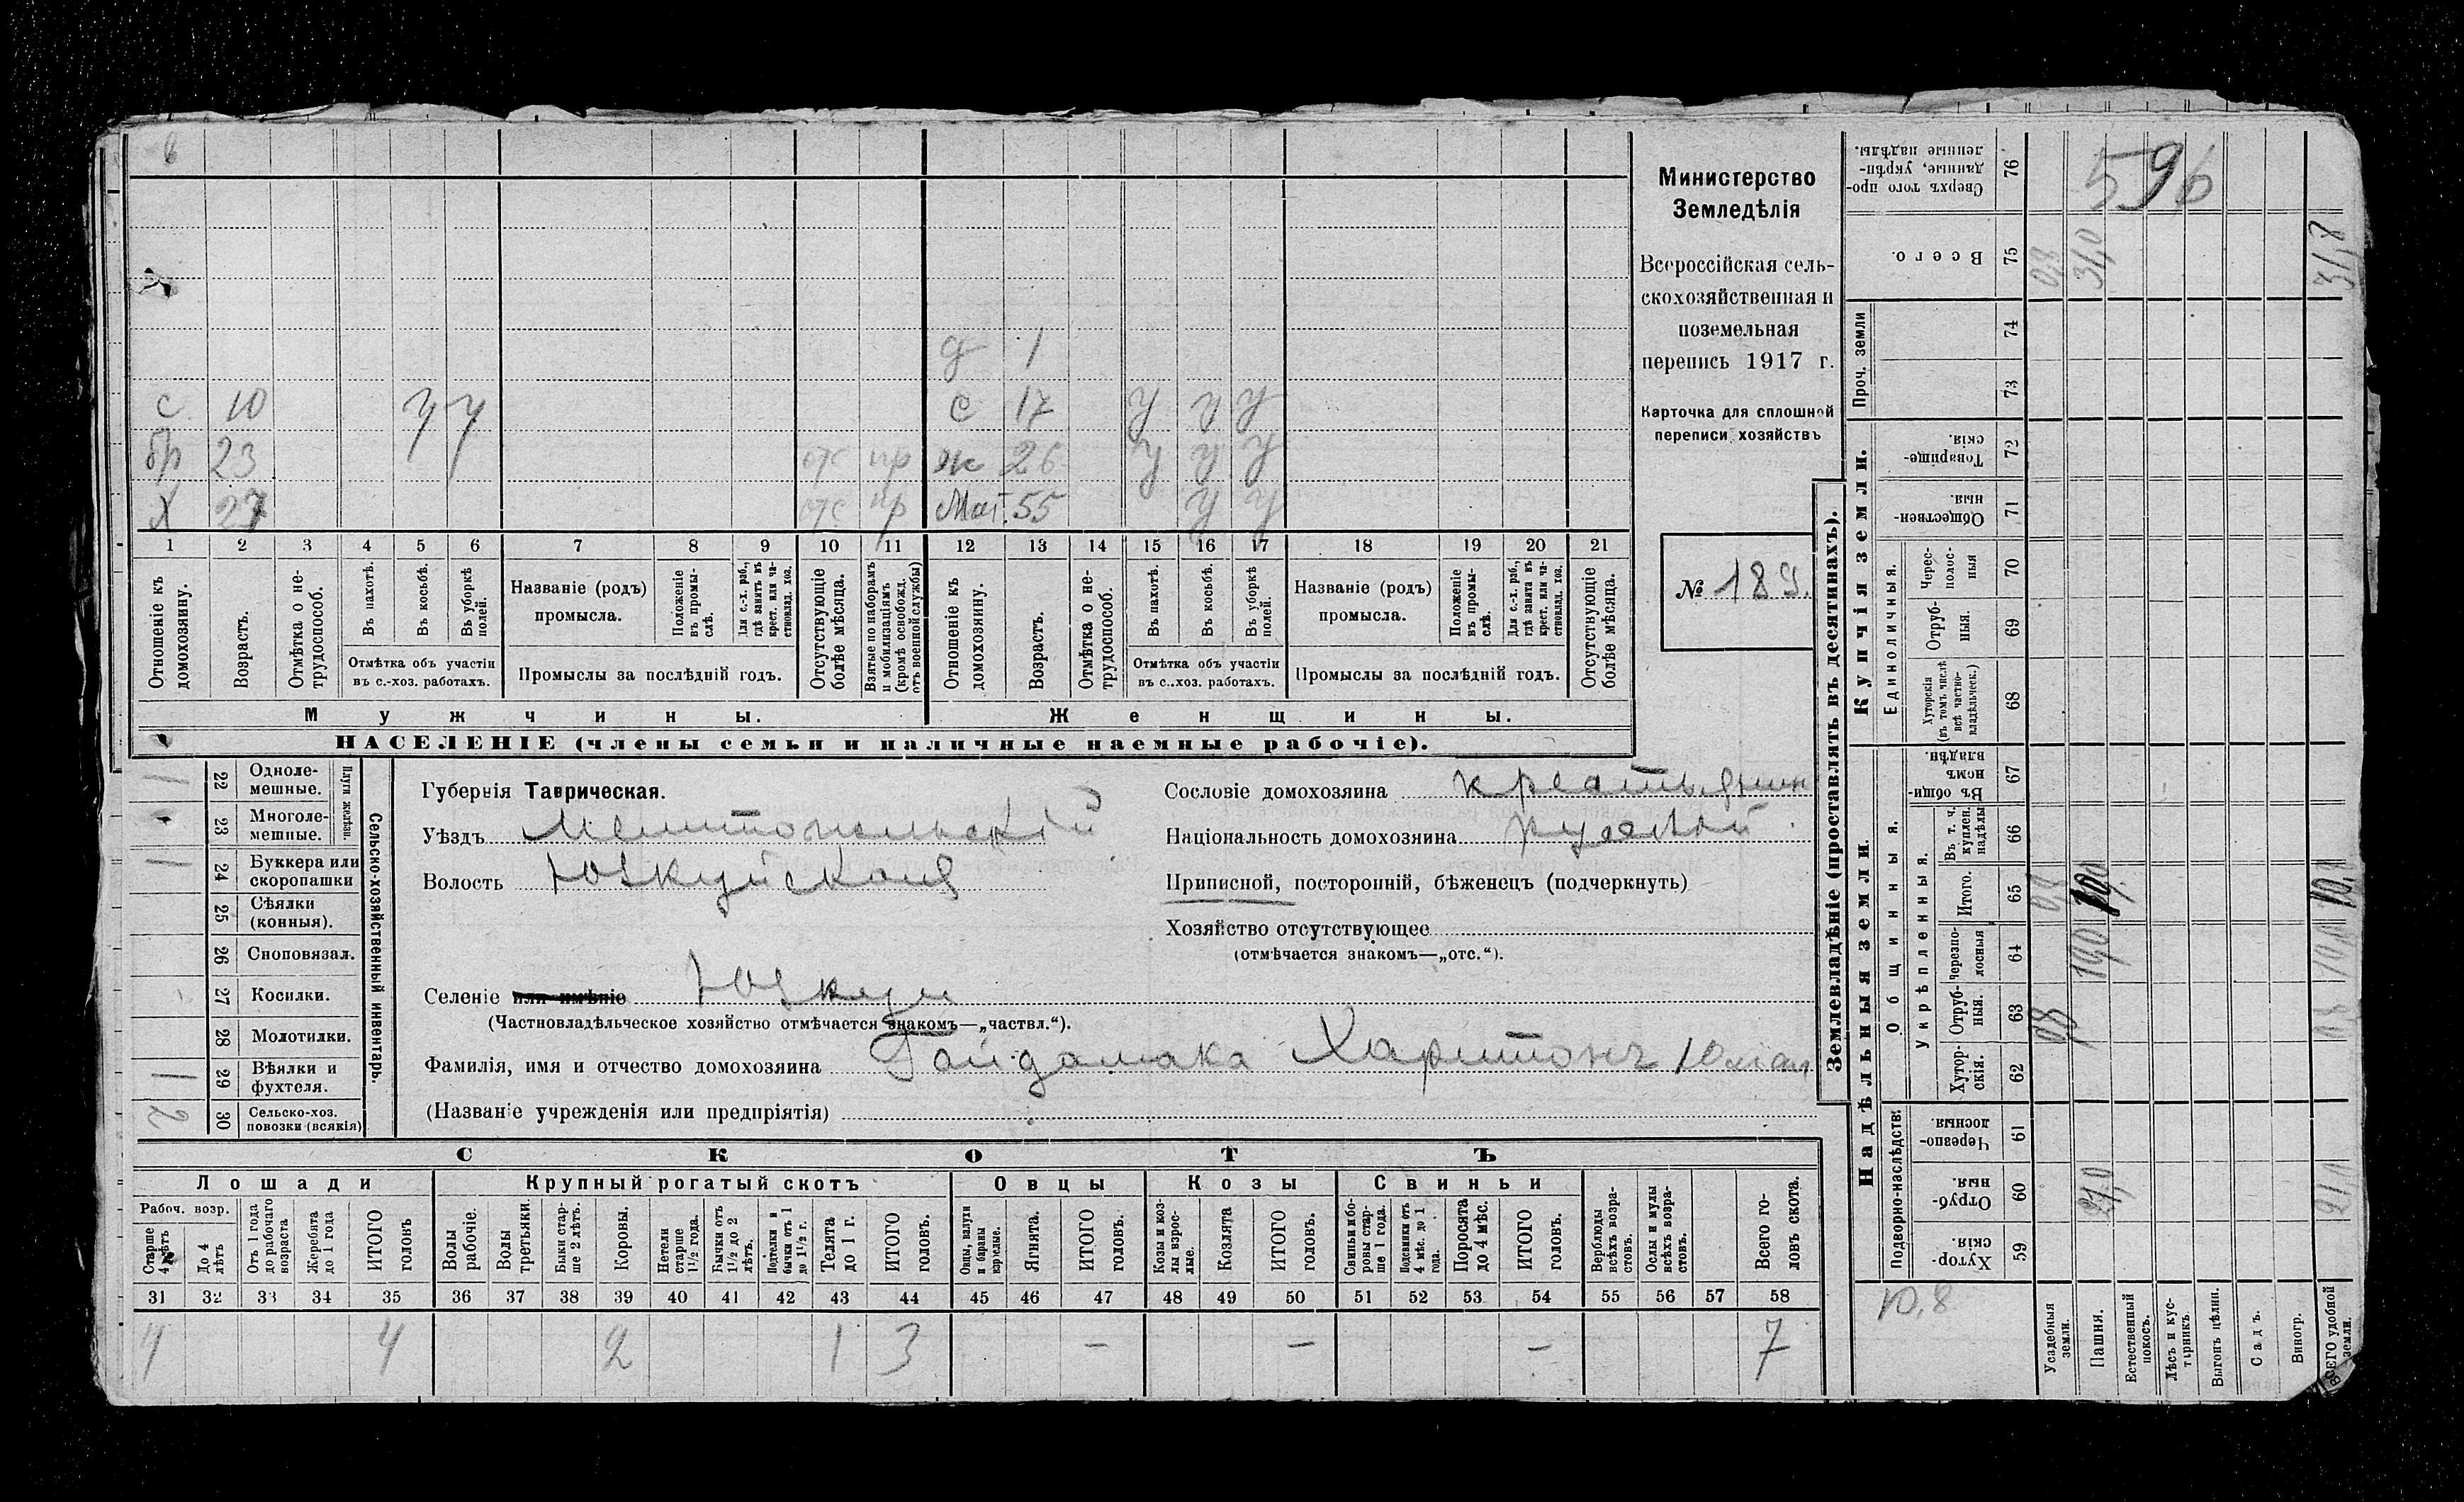 Министерство
Земледѣлія
Всероссійская сель-
скохозяйственная и
поземельная
перепись 1917 г.
Карточка для сплошной
переписи хозяйствъ
№ 189.
596
д 1
с 10 у у с 17 у у у
бр 23 отс пр ж 26 у у у
Х 27 отс пр Мат. 55 у у
1 2 3 4 5 6 7 8 9 10 11 12 13 14 15 16 17 18 19 20 21
Отношеніе къ домохозяину.
Возрастъ.
Отмѣтка о не-трудоспособ.
Въ пахотѣ.
Въ косьбѣ.
Въ уборкѣ полей.
Отмѣтка объ участіи
въ с.-хоз. работахъ.
Названіе (родъ)
промысла.
Положеніе въ промы-слѣ.
Для с.-х. раб., гдѣ занятъ въ крест. или ча-стновлад. хоз.
Промыслы за послѣдній годъ.
Отсутствующіе болѣе мѣсяца.
Взятые по наборамъ и мобилизаціямъ (кромѣ освобожд. отъ военной службы)
Отношеніе къ домохозяину.
Возрастъ.
Отмѣтка о не-трудоспособ.
Въ пахотѣ.
Въ косьбѣ.
Въ уборкѣ полей.
Отмѣтка объ участіи
въ с.-хоз. работахъ.
Названіе (родъ)
промысла.
Положеніе въ промы-слѣ.
Для с.-х. раб., гдѣ занята въ крест. или ча-стновлад. хоз.
Промыслы за послѣдній годъ.
Отсутствующіе болѣе мѣсяца.
Мужчины. Женщины.
НАСЕЛЕНІЕ (члены семьи и наличные наемные рабочіе).
Сельско-хозяйственный инвентарь.
Плуги желѣзн.
1 22 Одноле-мешные.
23 Многоле-мешные.
1 24 Буккера или скоропашки
25 Сѣялки (конныя).
26 Сноповязал.
27 Косилки.
28 Молотилки.
1 29 Вѣялки и фухтеля.
2 30 Сельско-хоз. повозки (всякія)
Губернія Таврическая.
Уѣздъ Мелитопольскій
Волость Юзкуйская
Селеніе или имѣніе Юзкуи
(Частновладѣльческое хозяйство отмѣчается знакомъ—„частвл.“).
Фамилія, имя и отчество домохозяина Гайдамака Харитонъ
(Названіе учрежденія или предпріятія)
Сословіе домохозяина крестьянин
Національность домохозяина русскій
Приписной, посторонній, бѣженецъ (подчеркнуть)
Хозяйство отсутствующее
(отмѣчается знакомъ—„отс.“).
СКОТЪ
Лошади Крупный рогатый скотъ Овцы Козы Свиньи
Рабоч. возр.
Старше 4 лѣтъ
До 4 лѣтъ
Отъ 1 года до рабочаго возраста
Жеребята до 1 года
ИТОГО головъ
Волы рабочіе.
Волы третьяки.
Быки стар-ше 2 лѣтъ.
Коровы.
Нетели старше 1½ года.
Бычки отъ 1½ до 2 лѣтъ.
Подтелки и бычки отъ 1 до 1½ г.
Телята до 1 г.
ИТОГО головъ.
Овцы, валухи и бараны взрослые.
Ягнята.
ИТОГО головъ.
Козы и коз-лы взрос-лые.
Козлята
ИТОГО головъ.
Свиньи и бо-ровы стар-ше 1 года.
Подсвинки отъ 4 мѣс. до 1 года.
Поросята до 4 мѣс.
ИТОГО головъ.
Верблюды всѣхъ возра-стовъ.
Ослы и мулы всѣхъ возра-стовъ.
Всего го-ловъ скота.
31 32 33 34 35 36 37 38 39 40 41 42 43 44 45 46 47 48 49 50 51 52 53 54 55 56 57 58
4 4 2 1 3 – – – 7
Землевладѣніе (проставлять въ десятинахъ).
Купчія земли.
Надѣльныя земли.
Сверхъ того про-данные, укрѣп-ленные надѣлы. 76
Всего. 75 0,8 31,0 31,8
Проч. земли 74
73
Товарище-скія. 72
Обществен-ныя. 71
Единоличныя.
Черес-полос-ныя 70
Отруб-ныя. 69
Хуторскія (въ томъ числѣ всѣ частно-владѣльческ.) 68
Общинныя.
Въ общи-номъ владѣн. 67
Укрѣпленныя.
Въ т. ч. куплен. надѣлы 66
Итого. 65 0,8
Черезпо-лосныя 64 10,0
Отруб-ныя. 63 0,8
Хутор-скія. 62
Подворно-наслѣдств.
Черезпо-лосныя 61
Отруб-ныя. 60 21,0
Хутор-скія. 59
10,8
Усадебныя земли.
Пашня.
Естественный покосъ.
Лѣсъ и кус-тарникъ.
Выгонъ цѣлин.
Садъ.
Виногр.
ВСЕГО удобной земли.